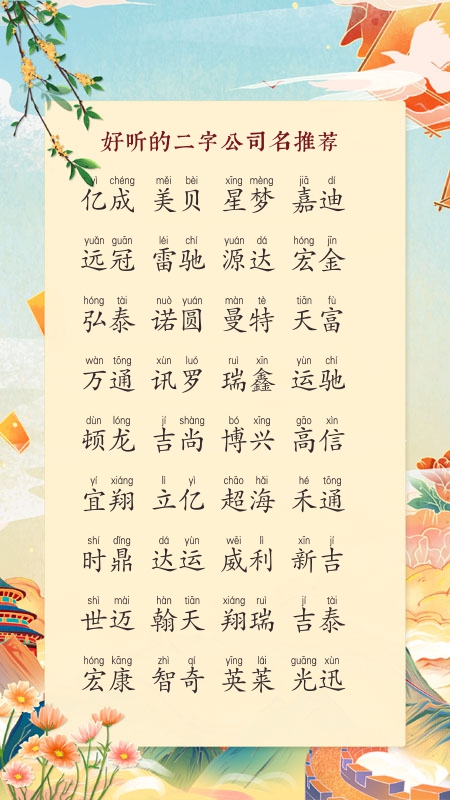 好听的二字公司名推荐
yì chéng měi bèi xīng mèng jiā dí
亿成 美贝 星梦 嘉迪
yuǎn guān léi chí yuán dá hóng jīn
远冠 雷驰 源达 宏金
hóng tài nuò yuán màn tè tiān fù
弘泰 诺圆 曼特 天富
wàn tōng xùn luó ruì xīn yùn chí
万通 讯罗 瑞鑫 运驰
dùn lóng jí shàng bó xīng gāo xìn
顿龙 吉尚 博兴 高信
yí xiáng lì yì chāo hǎi hé tōng
宜翔 立亿 超海 禾通
shí dǐng dá yùn wēi lì xīn jí
时鼎 达运 威利 新吉
shì mài hàn tiān xiáng ruì jí tài
世迈 翰天 翔瑞 吉泰
hóng kāng zhì qí yīng lái guāng xùn
宏康 智奇 英莱 光迅